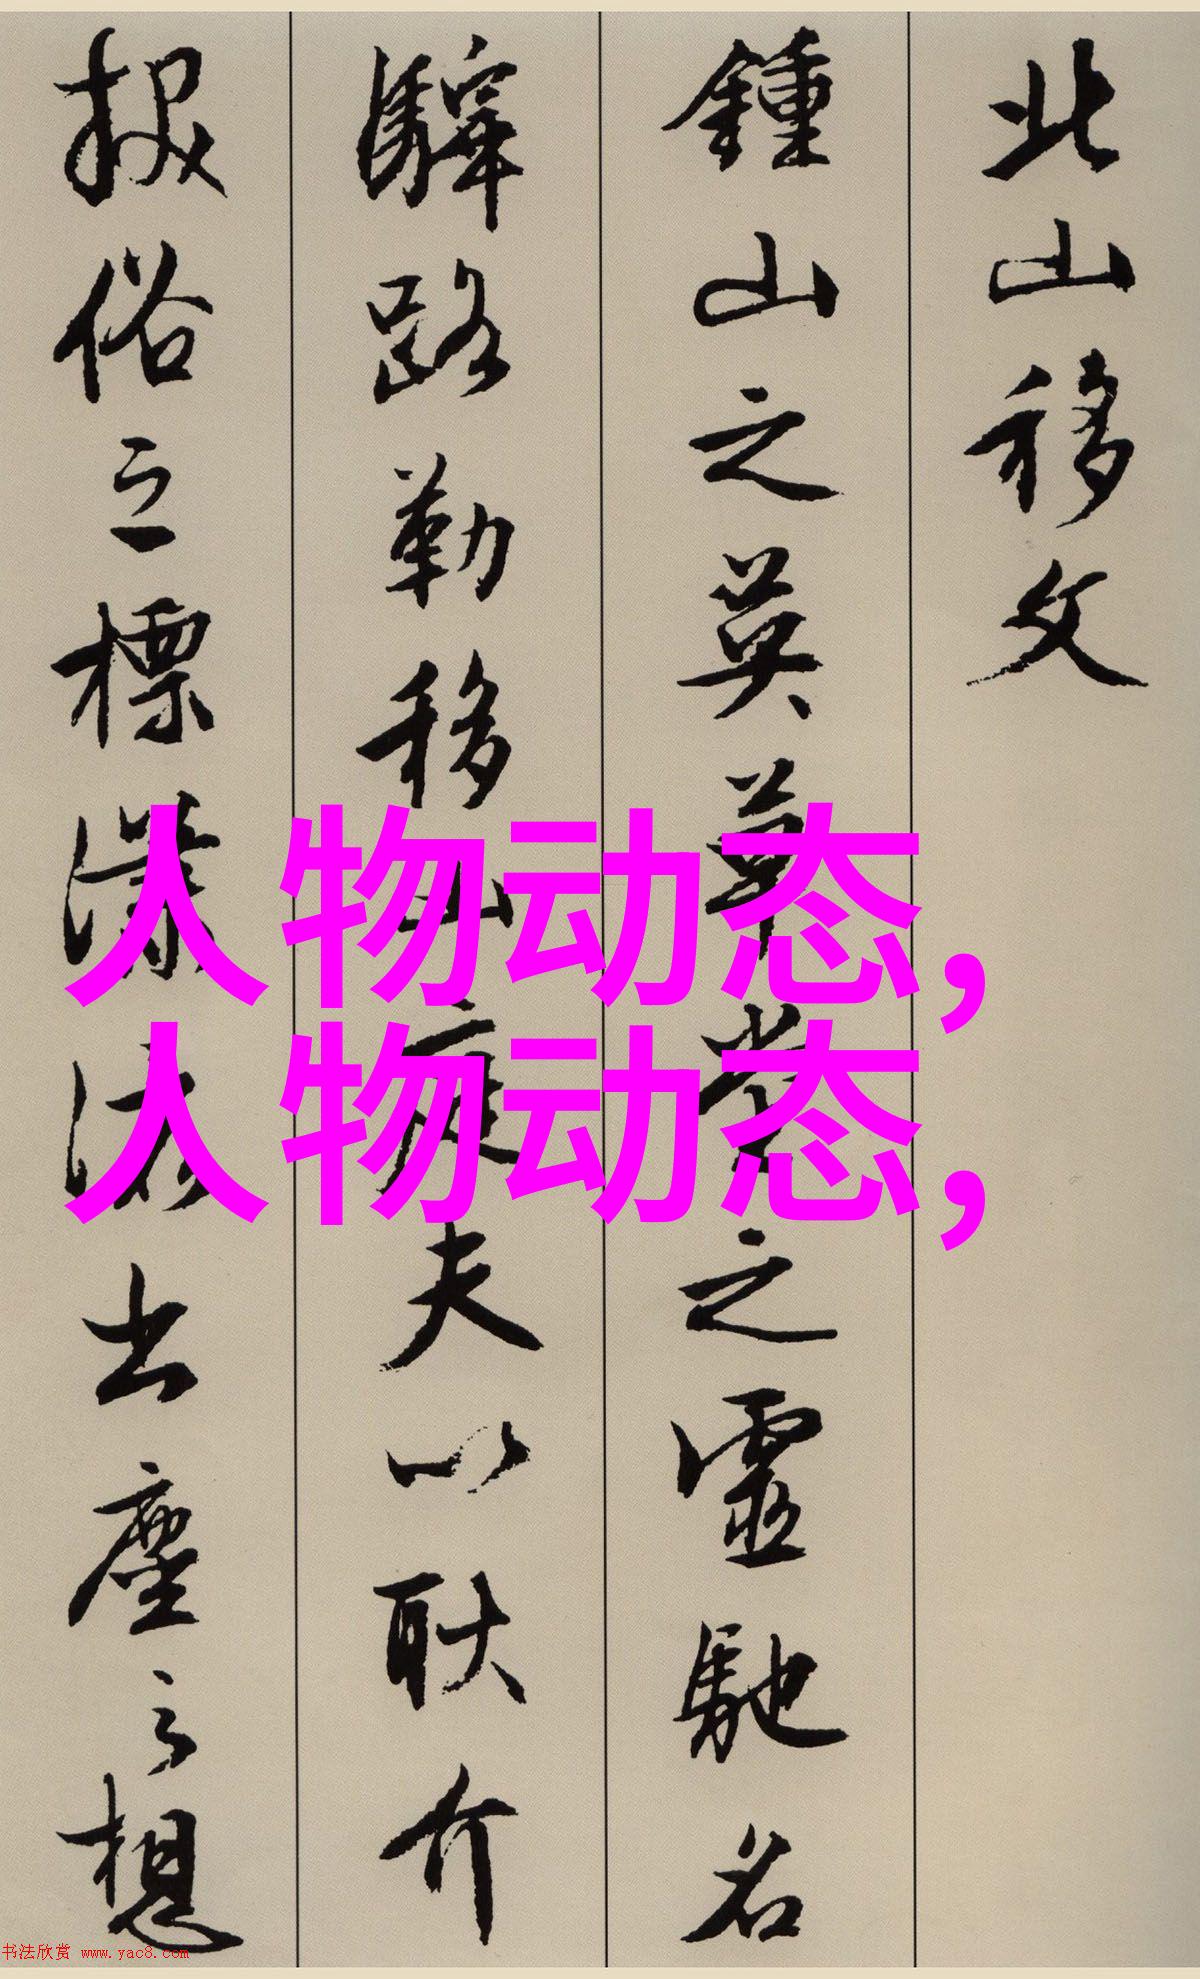 北山移文
鍾山之英草堂之靈馳名
驛路勒移山庭夫以耿介
拔俗之標瀟出塵之想
人物动态,
人物动态,
书法欣赏 www.yac8.com